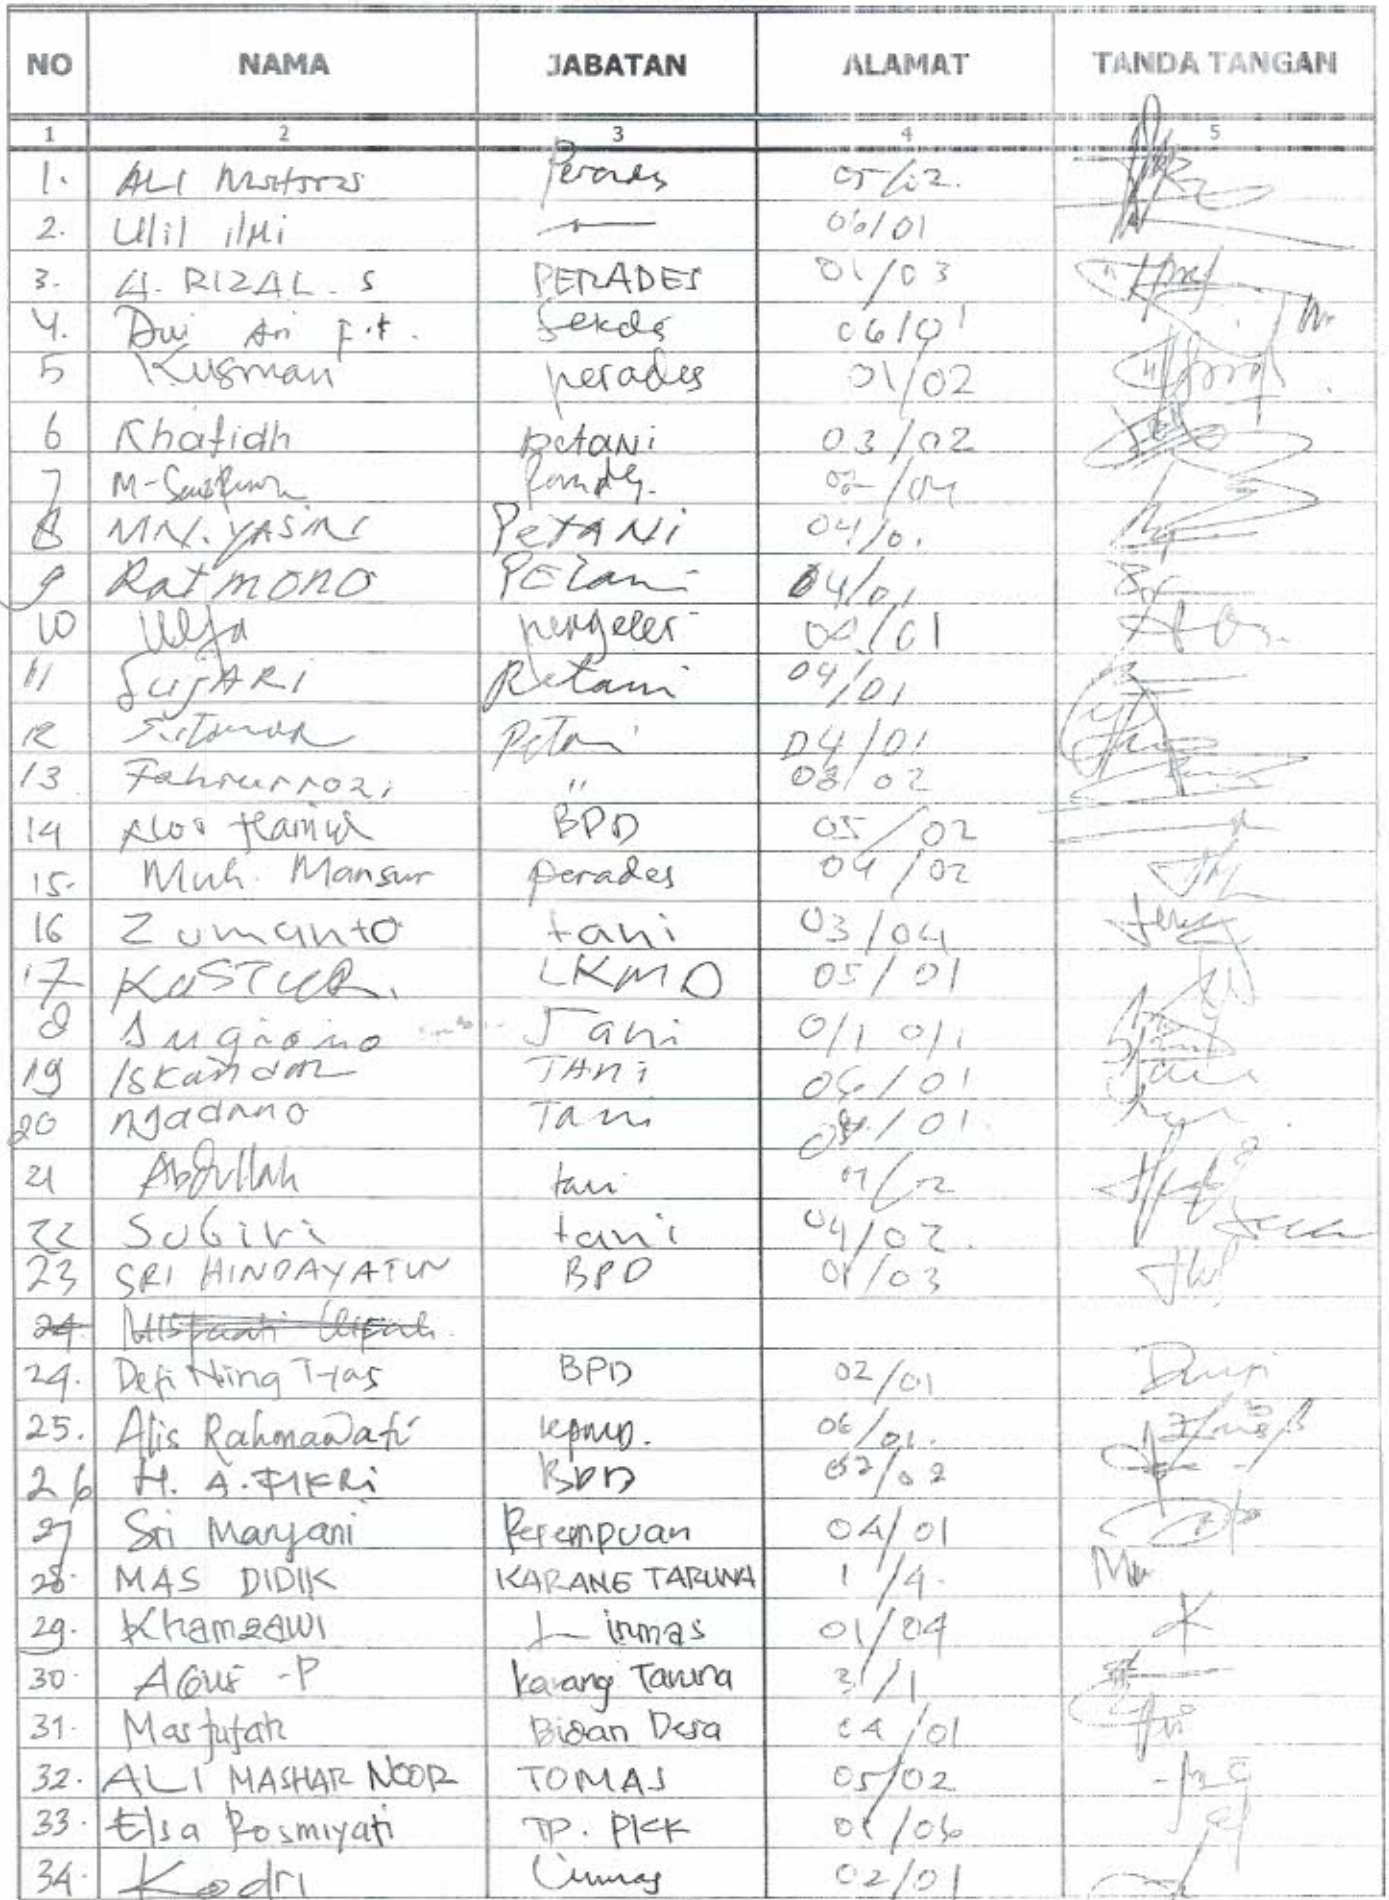 NO NAMA JABATAN ALAMAT TANDA TANGAN
1 2 3 4 5
1. ALI Perades 05/02.
2. Ulil ilmi 06/01
3. A. RIZAL. S PERADES 01/03
4. Dwi Ari Sekdes 06/01
5 Kusman perades 01/02
6 Khafidh petani 03/02
7 M-
8 MN. YASIN PETANI 04/01
9 Ratmono PETani 04/01
10 Ulfa 01
11 SUJARI Petani 04/01
12 Petani 04/01
13 Fahrurrozi " 03/02
14 BPD 05/02
15. Muh. Mansur perades 04/02
16 Zumanto tani 03/04
17 KASTUR. LKMD 05/01
8 Sugiono Tani 0/1 0/1
19 Iskandar TANi 06/01
20 Tani 01
21 Abdullah tani
22 SUGIRI tani 04/02
23 SRI HINDAYATUN BPD 01/03
24.
24. Defi Ning Tyas BPD 02/01
25. Alis Rahmawati kpmd. 06/01.
26 H. A. FIKRi BPD 02/02
27 Sri Maryani Perempuan 04/01
28. MAS DIDIK KARANG TARUNA 1/4.
29. Khamzawi Linmas 01/04
30. AGUS -P karang Taruna 3/1
31. Masfufah Bidan Desa 04/01
32. ALI MASHAR NOOR TOMAS 05/02
33. Elsa Rosmiyati TP. PKK 01/06
34. Kodri Linmas 02/01